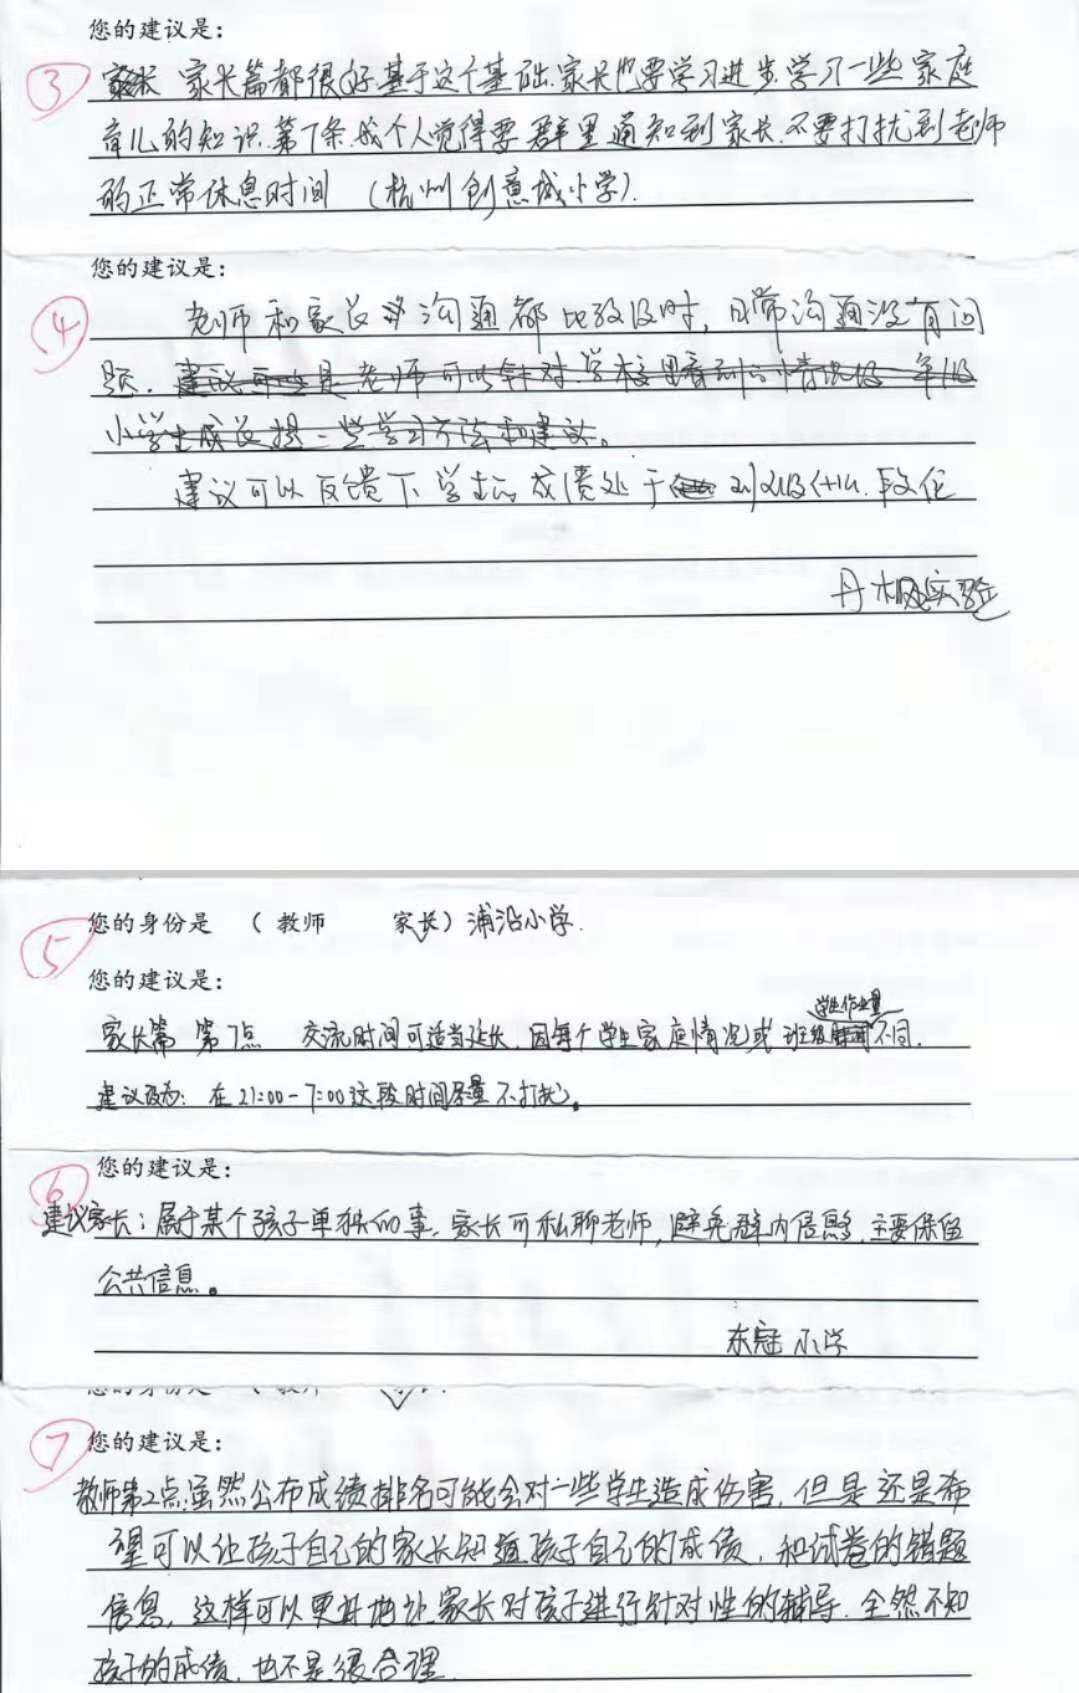 您的建议是:
③ 家长篇都很好.基于这个基础.家长也要学习进步.学习一些家庭
育儿的知识.第7条.我个人觉得要群里通知到家长.不要打扰到老师
的正常休息时间 (杭州创意城小学).
您的建议是:
④ 老师和家长沟通都比较及时，日常沟通没有问
题.建议可以是老师可以针对学校里看到的情况给年级
小学生成长提一些学习方法和建议。
建议可以反馈下学生的成绩处于班级什么段位
丹枫实验
⑤ 您的身份是 (教师 家长) 浦沿小学.
您的建议是:
学生作业量
家长篇 第7点 交流时间可适当延长.因每个学生家庭情况或班级不同.
建议改为: 在21:00-7:00这段时间尽量不打扰。
您的建议是:
⑥ 建议家长: 属于某个孩子单独的事.家长可私聊老师,避免群内信息多.主要保留
公共信息。
东冠小学
⑦ 您的建议是:
教师第2点:虽然公布成绩排名可能会对一些学生造成伤害.但是还是希
望可以让孩子自己的家长知道孩子自己的成绩.和试卷的错题
信息.这样可以更好地让家长对孩子进行针对性的辅导.全然不知
孩子的成绩.也不是很合理.